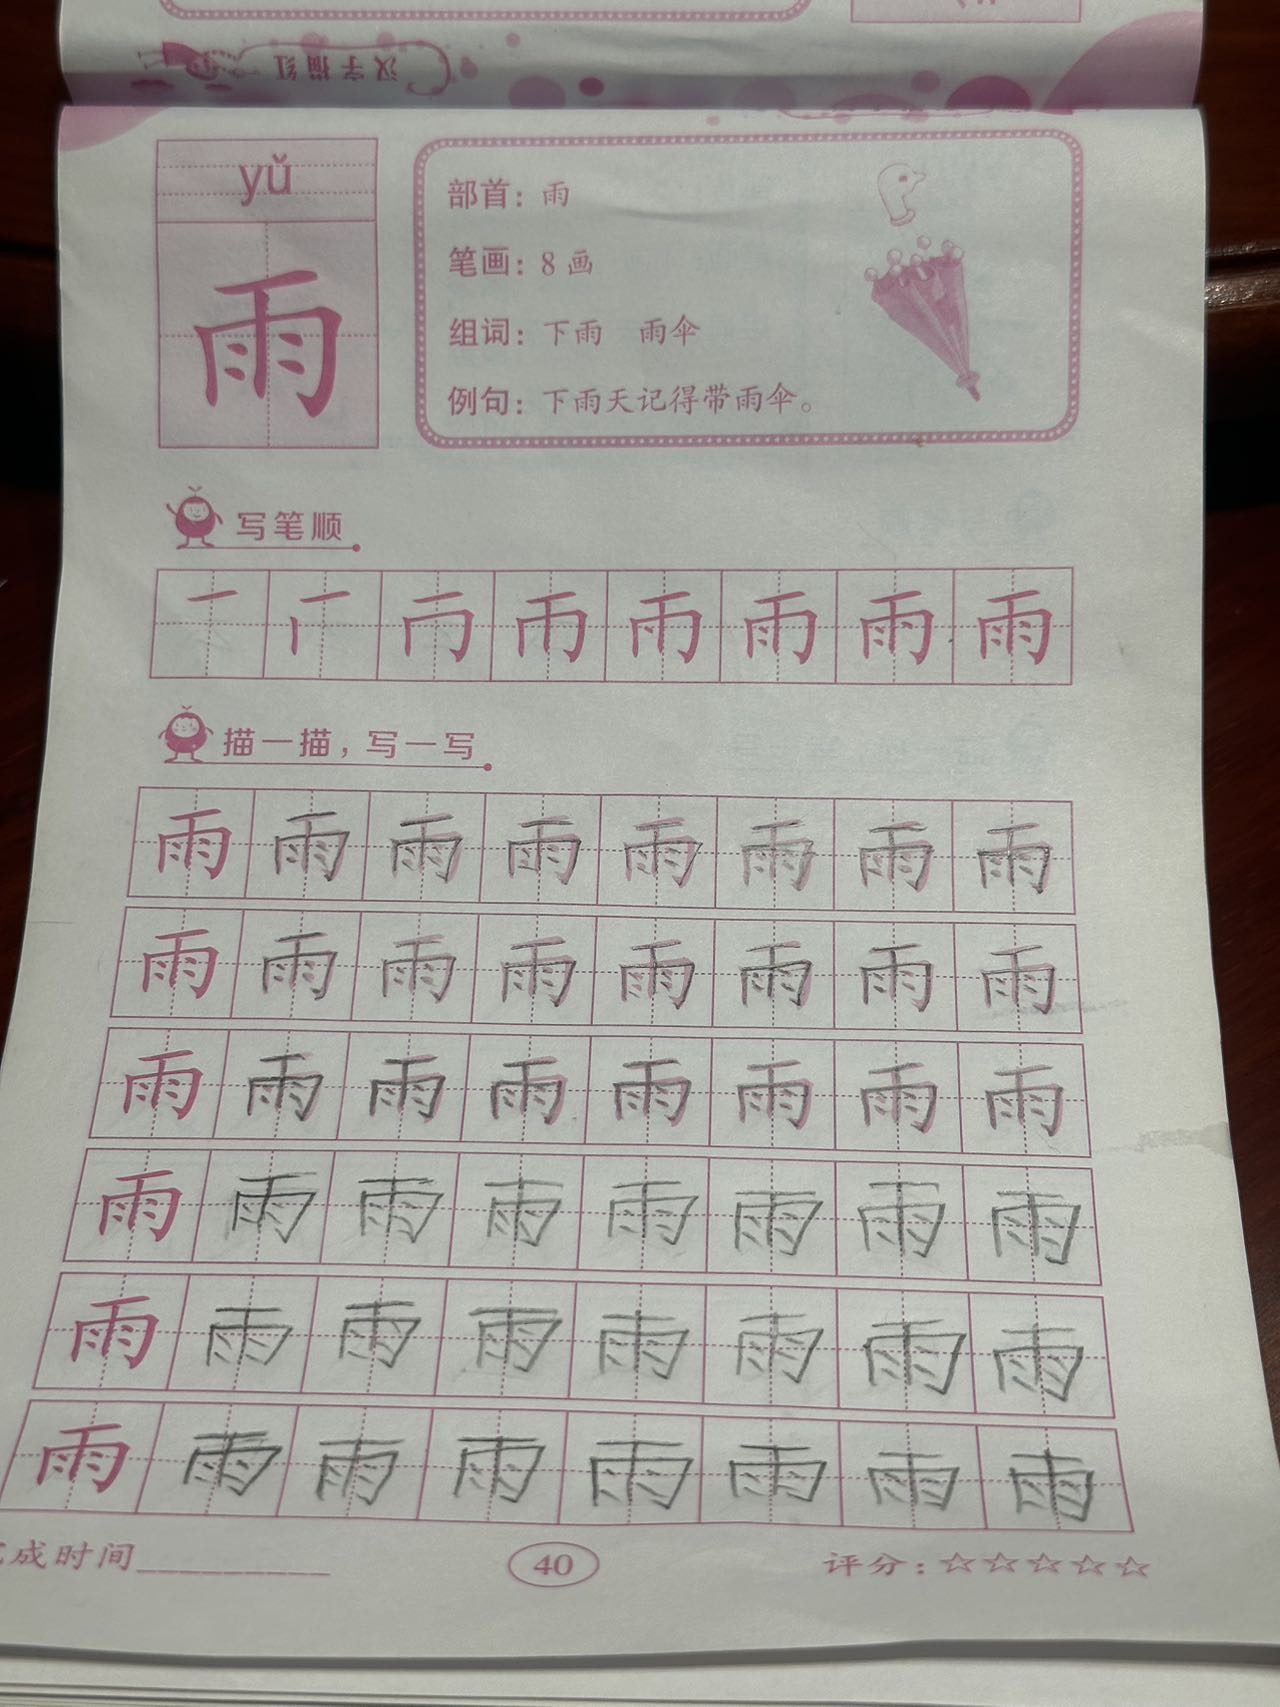 汉字描红
yǔ
雨
部首：雨
笔画：8画
组词：下雨 雨伞
例句：下雨天记得带雨伞。
写笔顺
雨
描一描，写一写
雨 雨 雨 雨 雨 雨 雨 雨
雨 雨 雨 雨 雨 雨 雨 雨
雨 雨 雨 雨 雨 雨 雨 雨
雨 雨 雨 雨 雨 雨 雨 雨
雨 雨 雨 雨 雨 雨 雨 雨
雨 雨 雨 雨 雨 雨 雨 雨
成时间
40
评分：☆☆☆☆☆